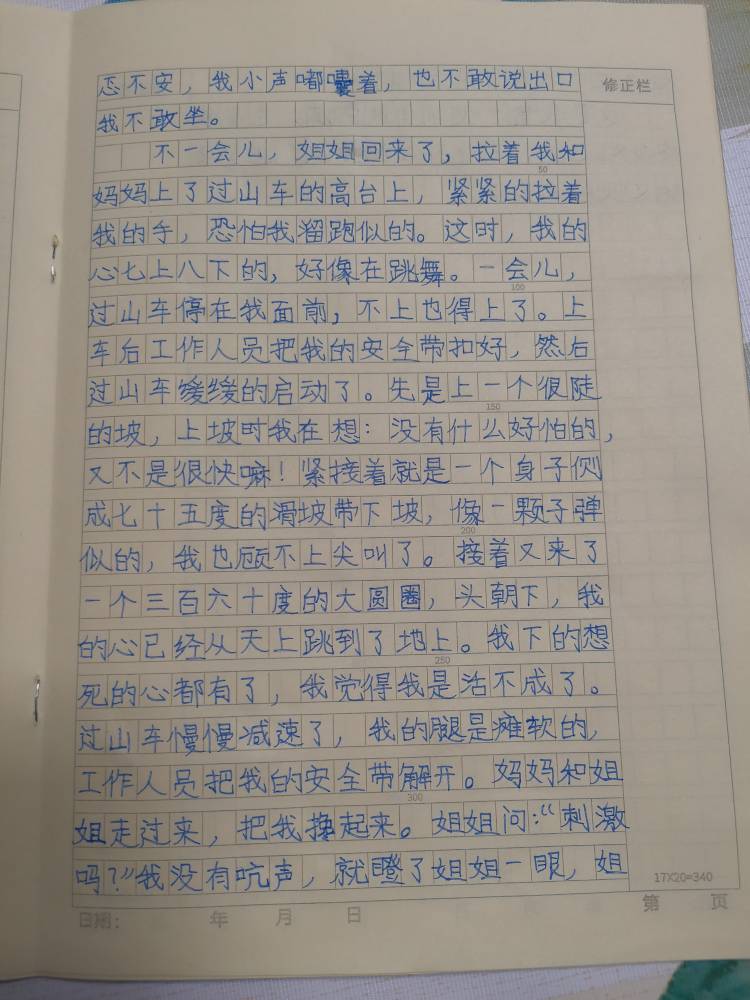 忑不安，我小声嘟囔着，也不敢说出口
修正栏
我不敢坐。
不一会儿，姐姐回来了，拉着我和
50
妈妈上了过山车的高台上，紧紧的拉着
我的手，恐怕我溜跑似的。这时，我的
心七上八下的，好像在跳舞。一会儿，
100
过山车停在我面前，不上也得上了。上
车后工作人员把我的安全带扣好，然后
过山车缓缓的启动了。先是上一个很陡
150
的坡，上坡时我在想：没有什么好怕的，
又不是很快嘛！紧接着就是一个身子侧
成七十五度的滑坡带下坡，像一颗子弹
200
似的，我也顾不上尖叫了。接着又来了
一个三百六十度的大圆圈，头朝下，我
的心已经从天上跳到了地上。我下的想
250
死的心都有了，我觉得我是活不成了。
过山车慢慢减速了，我的腿是瘫软的，
工作人员把我的安全带解开。妈妈和姐
300
姐走过来，把我搀起来。姐姐问：“刺激
吗？”我没有吭声，就瞪了姐姐一眼，姐
17X20=340
日期： 年 月 日
第 页